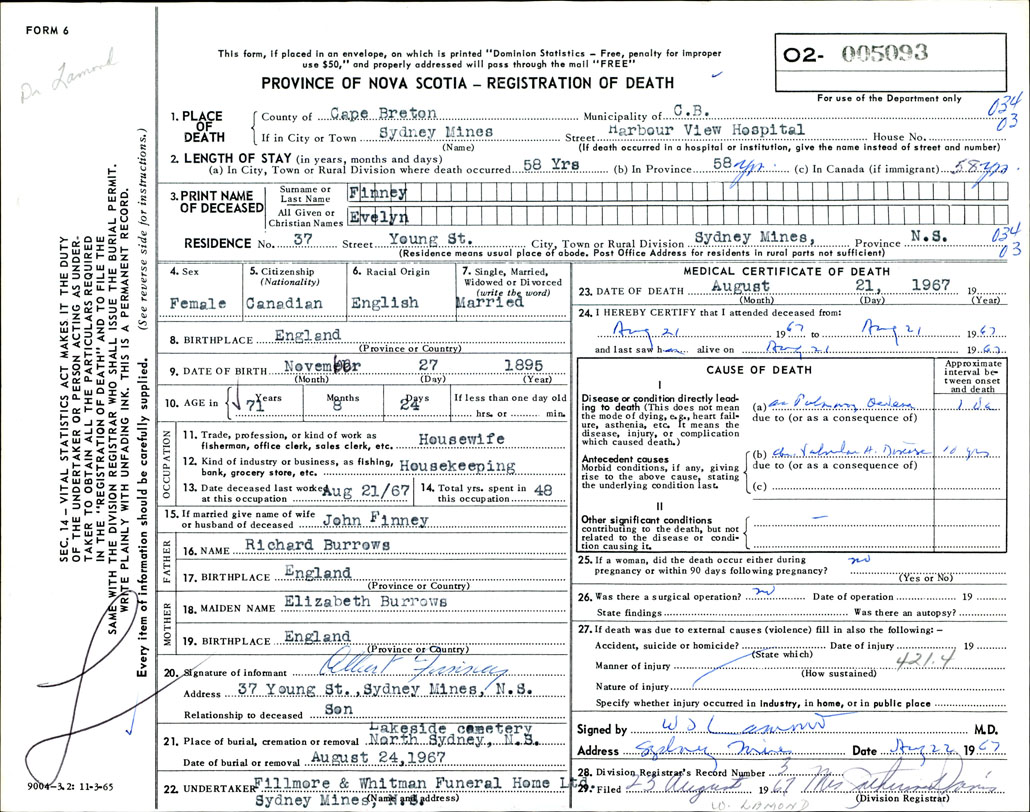 FORM 6
Dr Lamond
This form, if placed in an envelope, on which is printed "Dominion Statistics – Free, penalty for improper
use $50," and properly addressed will pass through the mail "FREE"
PROVINCE OF NOVA SCOTIA – REGISTRATION OF DEATH
O2- 005093
For use of the Department only
034
03
1. PLACE OF DEATH
County of Cape Breton Municipality of C.B.
If in City or Town Sydney Mines Street Harbour View Hospital House No.
(Name) (If death occurred in a hospital or institution, give the name instead of street and number)
2. LENGTH OF STAY (in years, months and days)
(a) In City, Town or Rural Division where death occurred 58 Yrs (b) In Province 58 yrs (c) In Canada (if immigrant) 58 yrs
3. PRINT NAME OF DECEASED
Surname or Last Name Finney
All Given or Christian Names Evelyn
RESIDENCE No. 37 Street Young St. City, Town or Rural Division Sydney Mines, Province N.S.
034
03
(Residence means usual place of abode. Post Office Address for residents in rural parts not sufficient)
4. Sex Female
5. Citizenship (Nationality) Canadian
6. Racial Origin English
7. Single, Married, Widowed or Divorced (write the word) Married
8. BIRTHPLACE England
(Province or Country)
9. DATE OF BIRTH November 27 1895
(Month) (Day) (Year)
10. AGE in Years 71 Months 8 Days 24 If less than one day old
hrs. or min.
OCCUPATION
11. Trade, profession, or kind of work as
fisherman, office clerk, sales clerk, etc. Housewife
12. Kind of industry or business, as fishing,
bank, grocery store, etc. Housekeeping
13. Date deceased last worked
at this occupation Aug 21/67
14. Total yrs. spent in
this occupation 48
15. If married give name of wife
or husband of deceased John Finney
FATHER
16. NAME Richard Burrows
17. BIRTHPLACE England
(Province or Country)
MOTHER
18. MAIDEN NAME Elizabeth Burrows
19. BIRTHPLACE England
(Province or Country)
20. Signature of informant Albert Finney
Address 37 Young St., Sydney Mines, N.S.
Relationship to deceased Son
21. Place of burial, cremation or removal Lakeside cemetery
North Sydney, N.S.
Date of burial or removal August 24,1967
22. UNDERTAKER Fillmore & Whitman Funeral Home Ltd
Sydney Mines, N.S.
(Name and address)
MEDICAL CERTIFICATE OF DEATH
23. DATE OF DEATH August 21, 1967 19
(Month) (Day) (Year)
24. I HEREBY CERTIFY that I attended deceased from:
Aug 21 1967 to Aug 21 1967
and last saw her alive on Aug 21 1967
CAUSE OF DEATH
Approximate interval between onset and death
I
Disease or condition directly leading
to death (This does not mean
the mode of dying, e.g., heart failure,
asthenia, etc. It means the
disease, injury, or complication
which caused death.)
(a) ac Pulmonary Oedema 1 da
due to (or as a consequence of)
Antecedent causes
Morbid conditions, if any, giving
rise to the above cause, stating
the underlying condition last.
(b) ch. Valvular H. Disease 10 yrs
due to (or as a consequence of)
(c)
II
Other significant conditions
contributing to the death, but not
related to the disease or condition
causing it.
–
25. If a woman, did the death occur either during
pregnancy or within 90 days following pregnancy? no
(Yes or No)
26. Was there a surgical operation? no Date of operation 19
State findings Was there an autopsy?
27. If death was due to external causes (violence) fill in also the following: –
Accident, suicide or homicide? Date of injury 19
(State which)
Manner of injury 421.4
(How sustained)
Nature of injury
Specify whether injury occurred in industry, in home, or in public place
Signed by W D Lamond M.D.
Address Sydney Mines Date Aug 22 1967
28. Division Registrar's Record Number 3
29. Filed 23 August 1967 Mrs
(Division Registrar)
W. LAMOND
SEC. 14 – VITAL STATISTICS ACT MAKES IT THE DUTY
OF THE UNDERTAKER OR PERSON ACTING AS UNDERTAKER
TO OBTAIN ALL THE PARTICULARS REQUIRED
IN THE "REGISTRATION OF DEATH" AND TO FILE THE
SAME WITH THE DIVISION REGISTRAR WHO SHALL ISSUE THE BURIAL PERMIT.
WRITE PLAINLY WITH UNFADING INK. THIS IS A PERMANENT RECORD.
Every item of information should be carefully supplied. (See reverse side for instructions.)
9004-3.2: 11-3-65